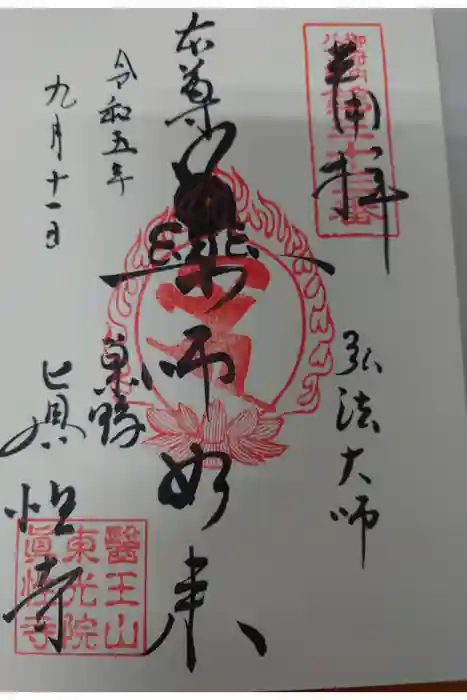 奉拝
弘法大師
本尊
薬師如来
令和五年
九月十一日
眞性寺
醫王山
東光院
眞性寺